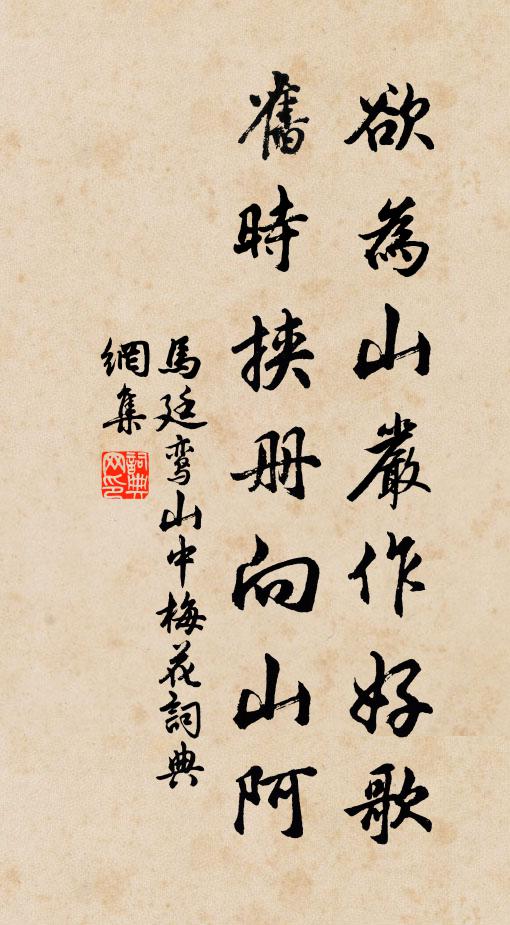 欲為山巖作好歌
舊時挾册向山阿
馬廷鸞山中梅花詞典
網集
詞典網印